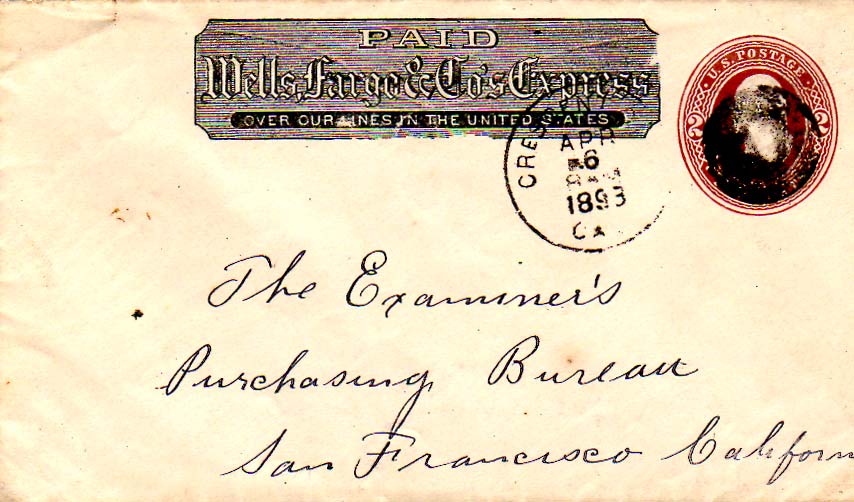 PAID
Wells, Fargo & Co's Express
OVER OUR LINES IN THE UNITED STATES
U.S. POSTAGE
2 2
APR
6
1893
CA
The Examiner's
Purchasing Bureau
San Francisco Californ